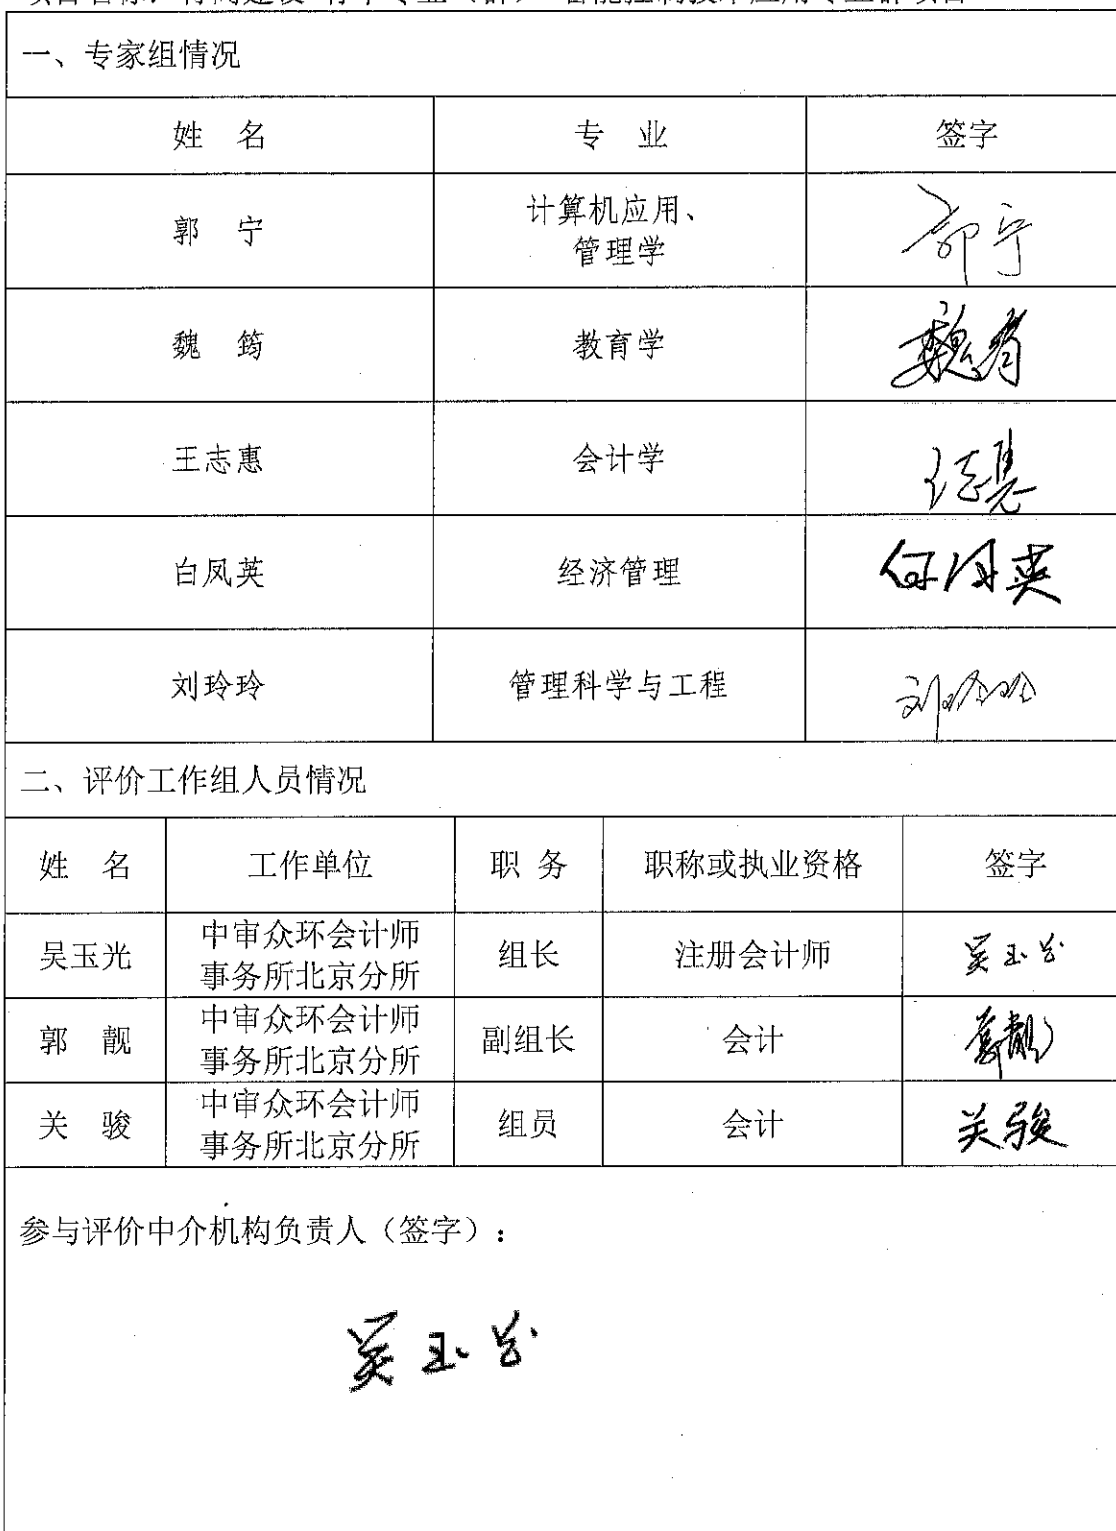 一、专家组情况
姓 名 专 业 签字
郭 宁 计算机应用、
管理学 郭宁
魏 筠 教育学 魏筠
王志惠 会计学 王志惠
白凤英 经济管理 白凤英
刘玲玲 管理科学与工程 刘玲玲
二、评价工作组人员情况
姓 名 工作单位 职 务 职称或执业资格 签字
吴玉光 中审众环会计师
事务所北京分所 组长 注册会计师 吴玉光
郭 靓 中审众环会计师
事务所北京分所 副组长 会计 郭靓
关 骏 中审众环会计师
事务所北京分所 组员 会计 关骏
参与评价中介机构负责人（签字）：
吴玉光